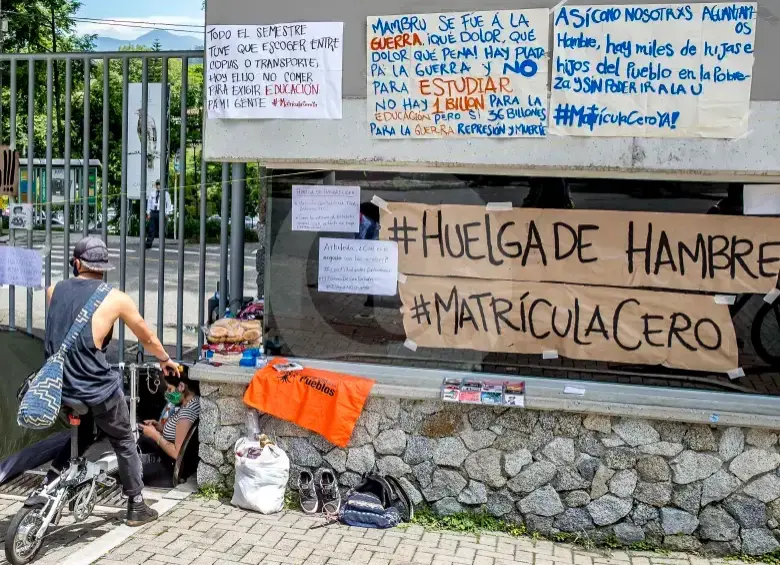 TODO EL SEMESTRE
TUVE QUE ESCOGER ENTRE
COPIAS O TRANSPORTE,
HOY ELIJO NO COMER
PARA EXIGIR EDUCACIÓN
PA MI GENTE #MatrículaCero
MAMBRU SE FUE Á LA
GUERRA, ¡QUÉ DOLOR, QUÉ
DOLOR QUE PENA! HAY PLATA
PA LA GUERRA Y NO
PARA ESTUDIAR
NO HAY 1 BILLON PARA LA
EDUCACIÓN PERO SI 36 BILLONES
PARA LA GUERRA REPRESIÓN Y MUERTE
ASÍ COMO NOSOTRXS AGUANTAM
OS
Hambre, hay miles de hijas e
hijos del Pueblo en la Pobre-
za Y SIN PODER IR A LA U
#MATRÍCULA CERO YA!
#HUELGA DE HAMBRE
#MATRÍCULA CERO
Pueblos